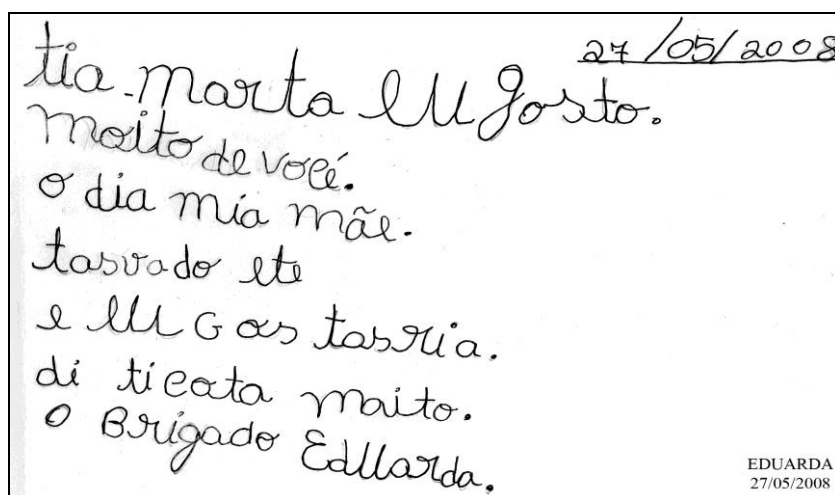 27/05/2008
tia. marta eu gosto.
moito de você.
o dia mía mãe.
tasvado ete
e eu Gos tasria.
di ticata maito.
o Brigado Eduarda.
EDUARDA
27/05/2008